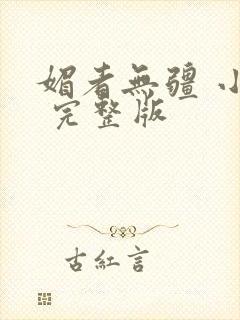 媚者無疆 小
完整版
古紅言